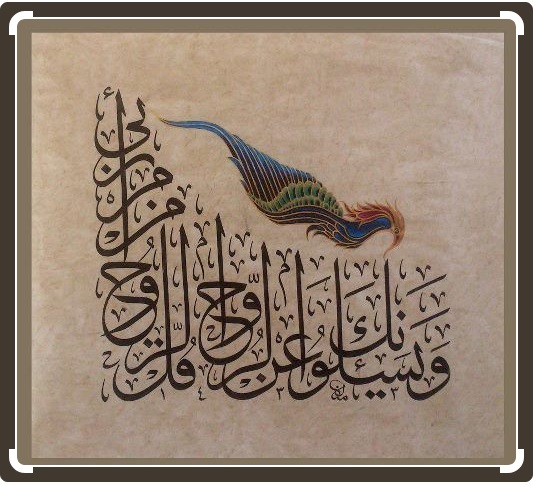 ويسئلونك عن الروح قل الروح من أمر ربي
١٤٣٣